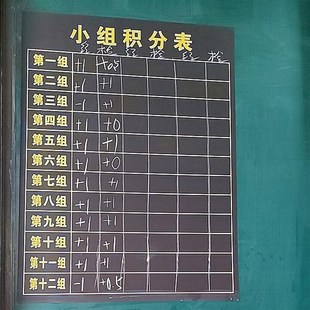 小组积分表
检 检 检
第一组 +1 +0.5
第二组 +1 +1
第三组 -1 +1
第四组 +1 +0
第五组 +1 +1
第六组 +1 +0
第七组 +1 +1
第八组 +1 +1
第九组 +1 +1
第十组 +1 +1
第十一组 +1 +1
第十二组 -1 +0.5